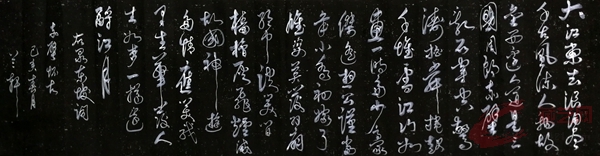 大江東去浪淘盡
千古風流人物故
壘西邊人道是三
國周郎赤壁
亂石穿空驚
濤拍岸捲起
千堆雪江山如
畫一時多少豪
傑遙想公瑾當
年小喬初嫁了
雄姿英發羽扇
綸巾談笑間
檣櫓灰飛煙滅
故國神遊
多情應笑我
早生華髮人
生如夢一樽還
酹江月
東坡詞
赤壁懷古
己丑春月